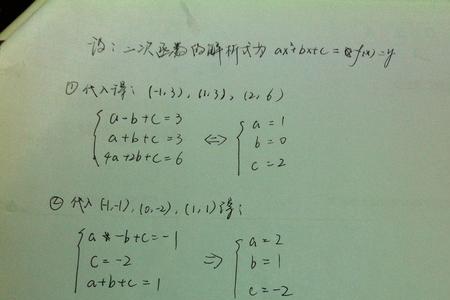 设：二次函数的解析式为 ax²+bx+c = f(x) = y
① 代入得：(-1,3), (1,3), (2,6)
a-b+c=3
a+b+c=3
4a+2b+c=6
⇔
a=1
b=0
c=2
② 代入 (-1,-1), (0,-2), (1,1)得：
a-b+c=-1
c=-2
a+b+c=1
⇒
a=2
b=1
c=-2